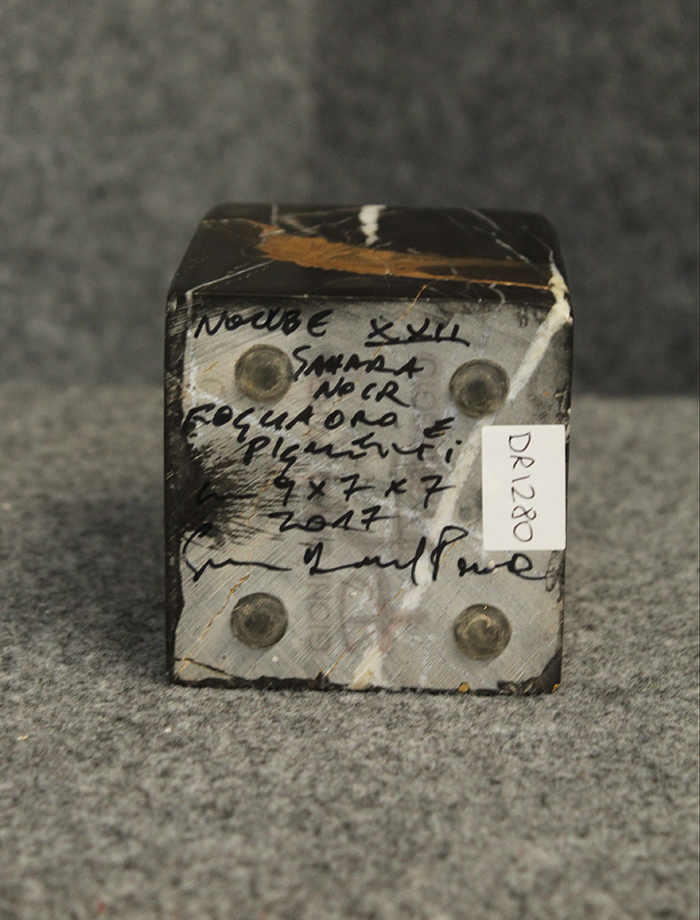 NOCUBE XXII
SAHARA
NOIR
FOGLIA ORO E
PIGMENTI
9 x 7 x 7
2017
DR1280